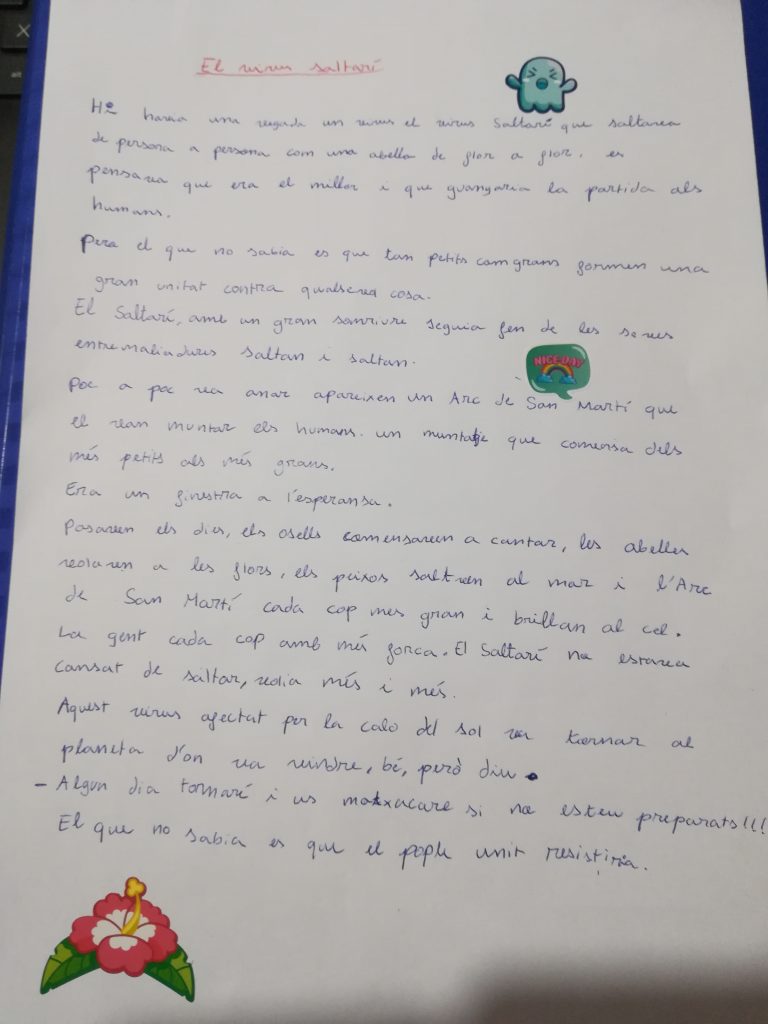 El virus saltarí
Hi havia una vegada un virus el virus Saltarí que saltava
de persona a persona com una abella de flor a flor, es
pensava que era el millor i que guanyaria la partida als
humans.
Pero el que no sabia es que tan petits com grans formen una
gran unitat contra qualsevol cosa.
El Saltarí, amb un gran somriure seguia fen de les seves
entremaliadures saltan i saltan.
NICE DAY
Poc a poc va anar apareixen un Arc de San Martí que
el van muntar els humans. un muntatje que comensa dels
més petits als més grans.
Era un finestra a l'esperansa.
Pasaven els dies, els osells comensaven a cantar, les abelles
volaven a les flors, els peixos saltaven al mar i l'Arc
de San Martí cada cop mes gran i brillan al cel.
La gent cada cop amb més forca. El Saltarí no estava
cansat de saltar, volia més i més.
Aquest virus afectat per la calo del sol va tornar al
planeta d'on va vindre, bé, però diu
- Algun dia tornaré i us matxacare si no esteu preparats!!!
El que no sabia es que el poble unit resistiria.